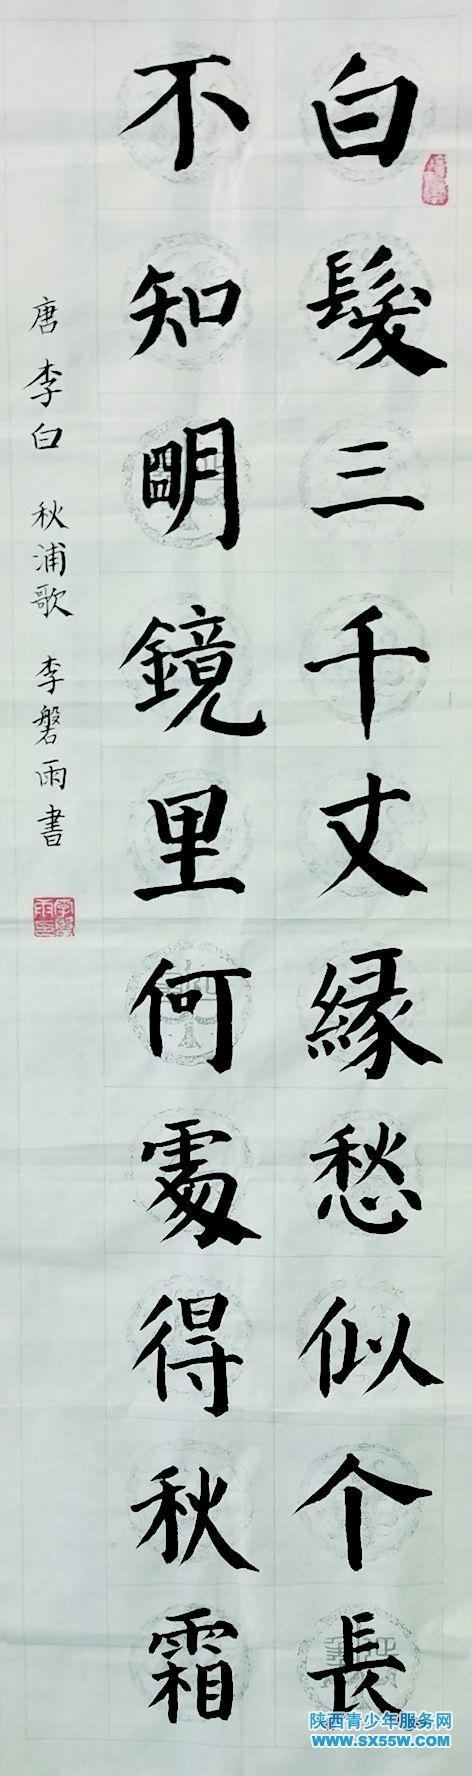 白髮三千丈緣愁似个長
不知明鏡里何處得秋霜
唐 李白 秋浦歌 李磐雨書
陕西青少年服务网
www.SX55W.com